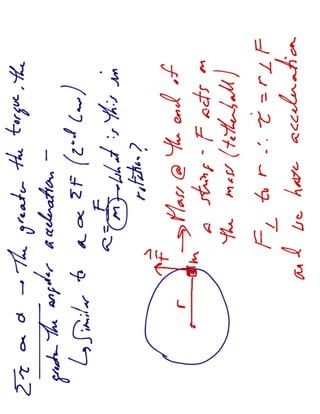 Στ α α → The greater the torque, the
greater the angular acceleration -
↳ Similar to a ∝ ΣF (2nd Law)
a = F/m → what is this in
rotation?
→ Mass @ the end of
a string - F acts on
the mass (tetherball)
F⃗
m
r
F⊥ to r ∴ τ = r⊥F
and we have acceleration